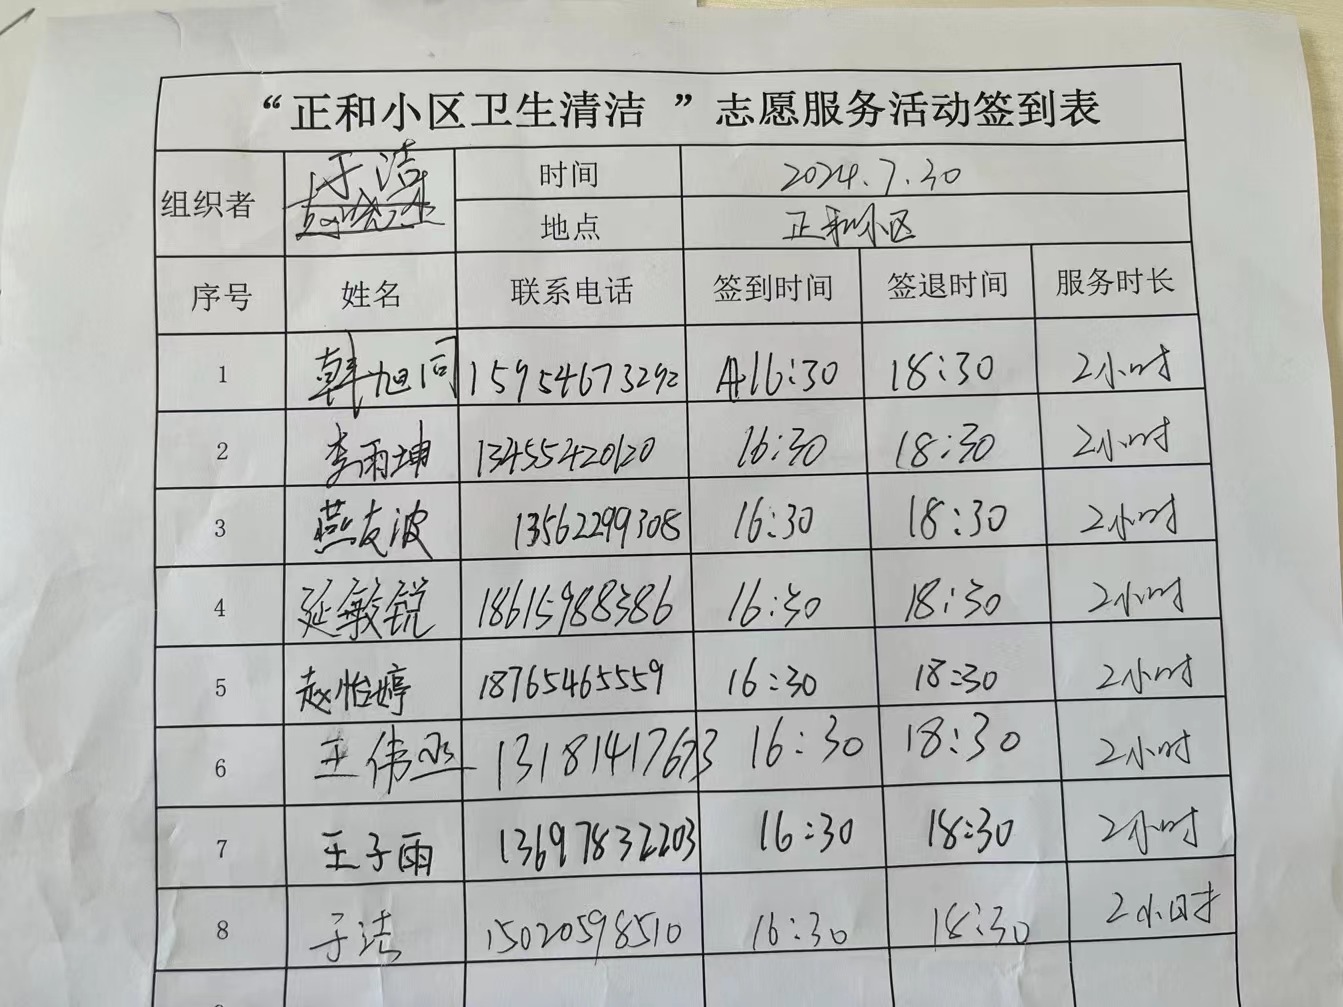 “正和小区卫生清洁 ”志愿服务活动签到表
组织者 于洁 时间 2024.7.30
地点 正和小区
序号 姓名 联系电话 签到时间 签退时间 服务时长
1 韩旭同 15954673292 16:30 18:30 2小时
2 李雨坤 13455420120 16:30 18:30 2小时
3 燕友波 13562299308 16:30 18:30 2小时
4 延敏锐 18615988386 16:30 18:30 2小时
5 赵怡婷 18765465559 16:30 18:30 2小时
6 王伟丞 13181417673 16:30 18:30 2小时
7 王子雨 13697832203 16:30 18:30 2小时
8 于洁 15020598510 16:30 18:30 2小时